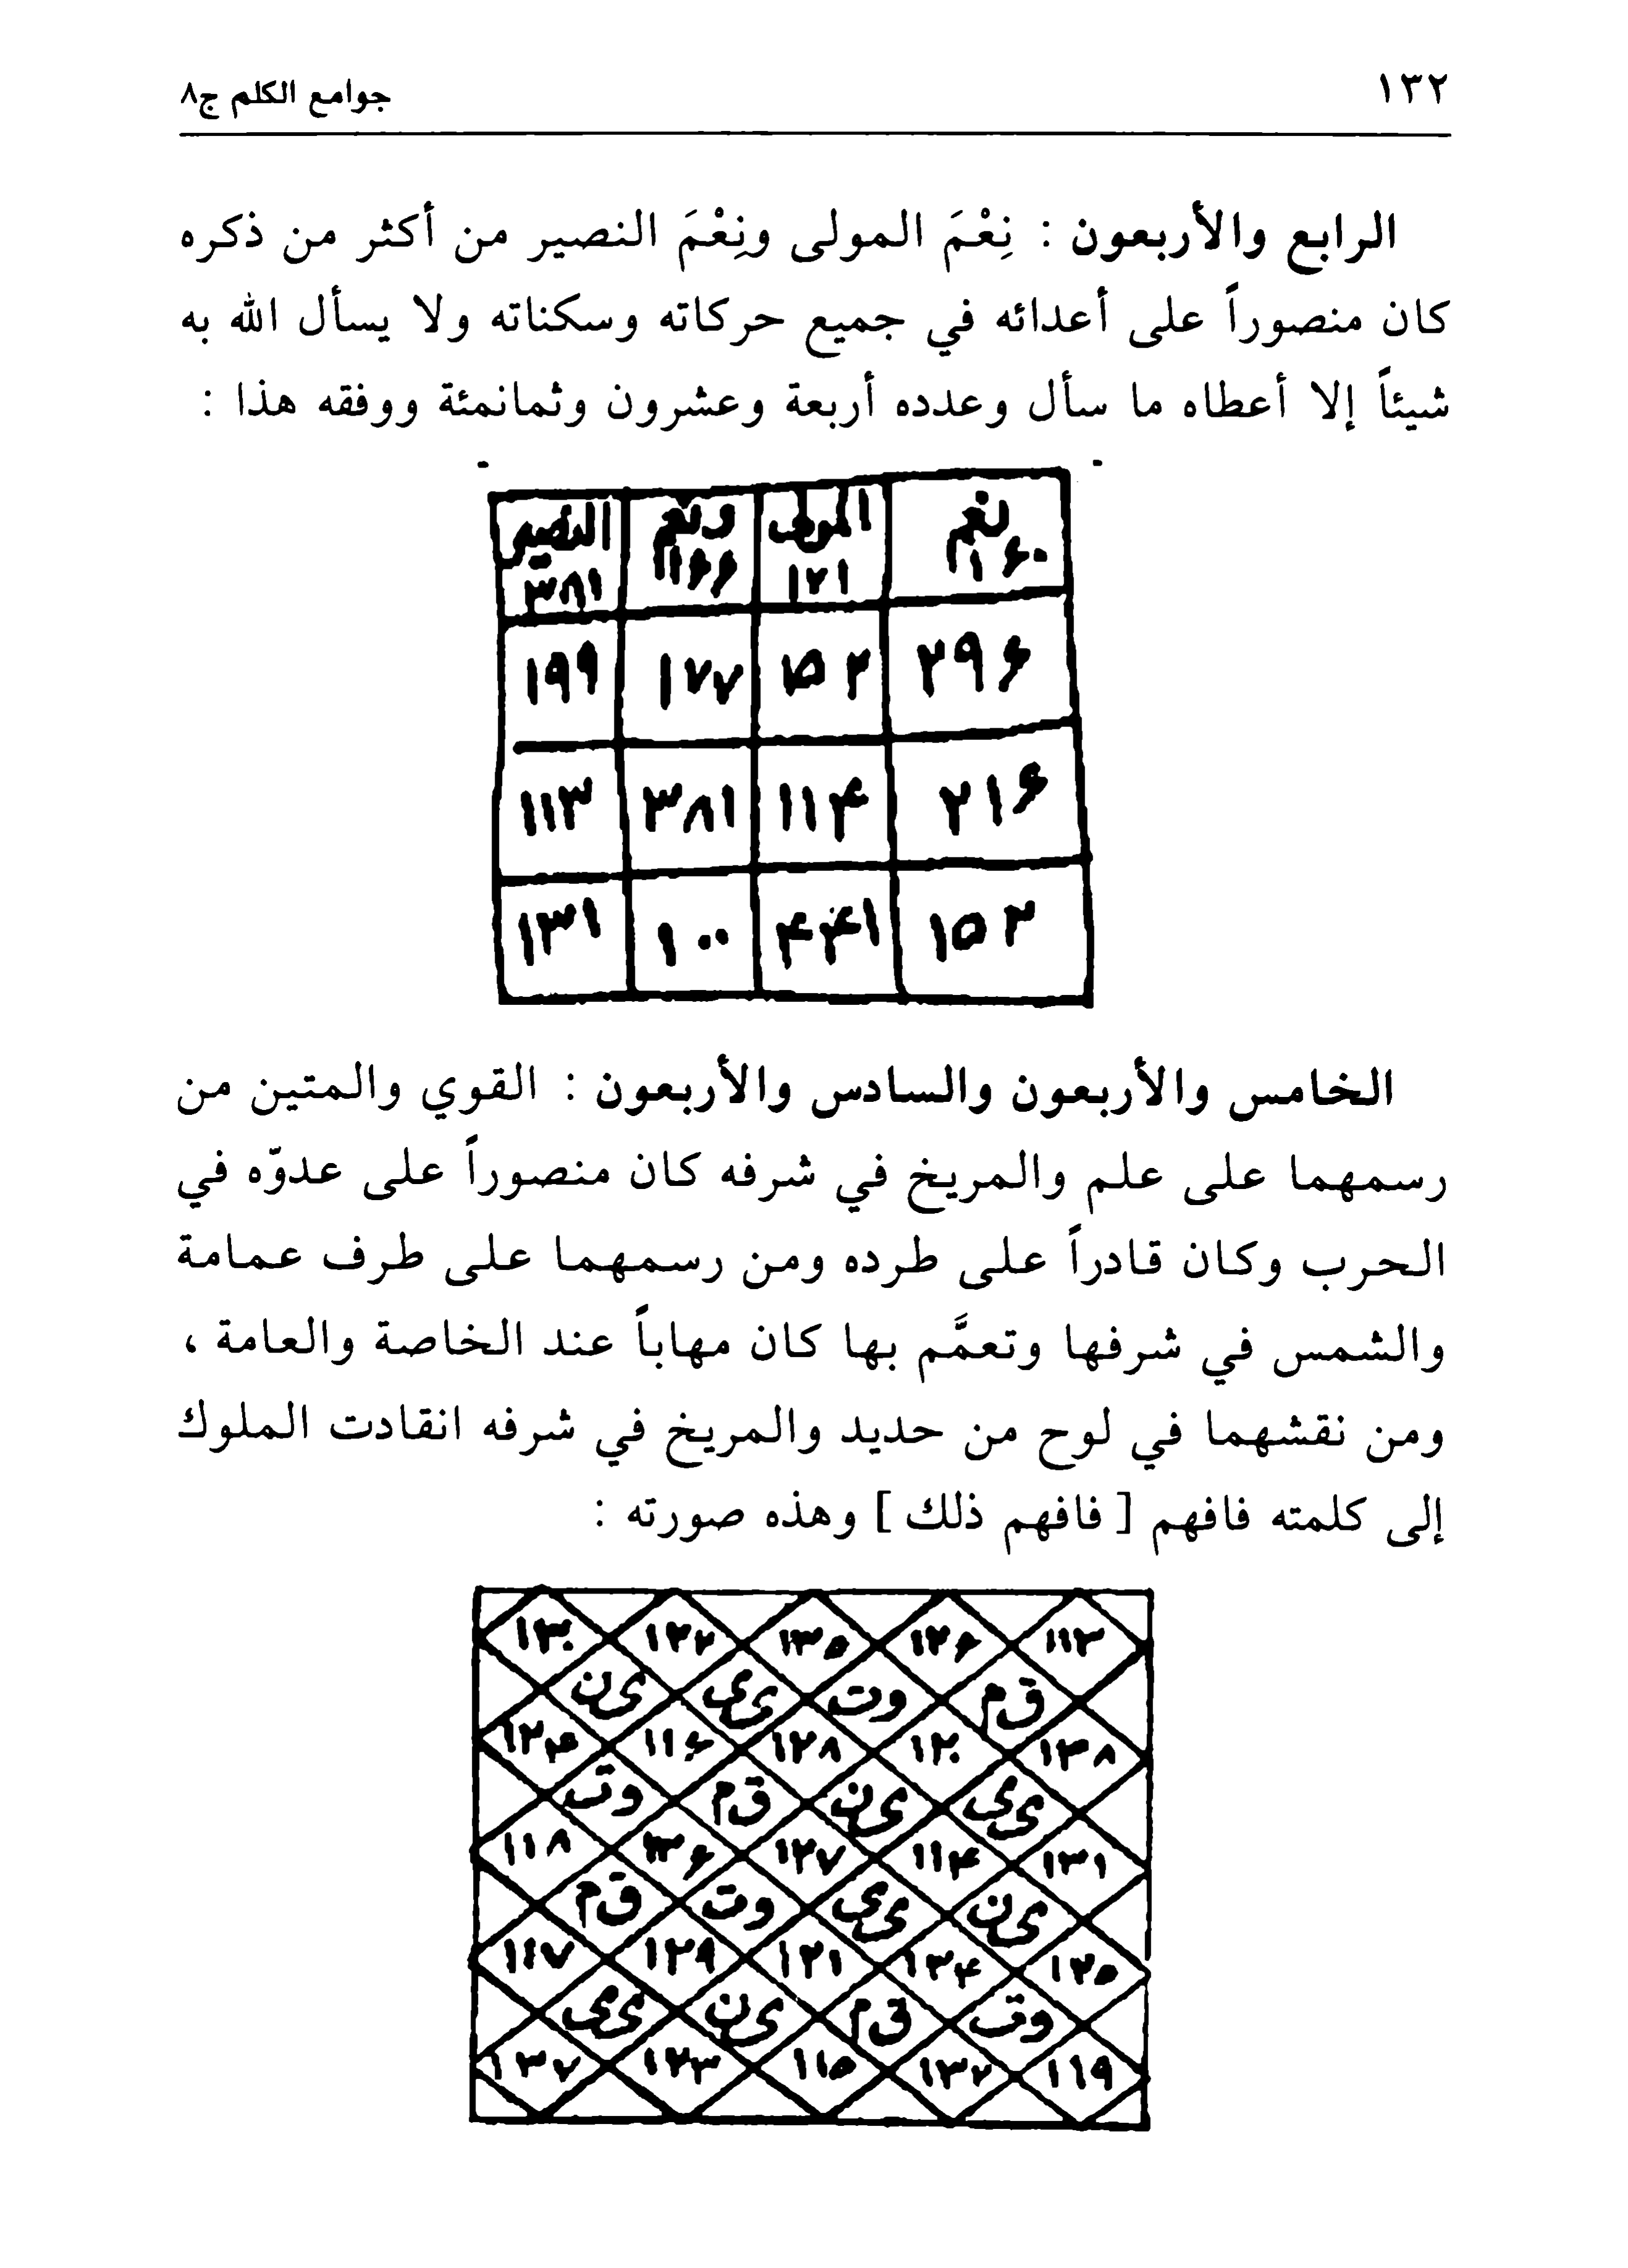 ١٣٢
جوامع الكلم ج٨
الرابع والأربعون : نِعْمَ المولى ونِعْمَ النصير من أكثر من ذكره
كان منصوراً على أعدائه في جميع حركاته وسكناته ولا يسأل الله به
شيئاً إلا أعطاه ما سأل وعدده أربعة وعشرون وثمانمئة ووفقه هذا :
نعم المولى ونعم النصير
١٦٠ ١٢١ ١٦٦ ٣٨١
٢٩٦ ١٥٢ ١٧٧ ١٩٩
٢١٦ ١١۴ ٣٨١ ١١٣
١٥٢ ۴۴١ ١٠٠ ١٣١
الخامس والأربعون والسادس والأربعون : القوي والمتين من
رسمهما على علم والمريخ في شرفه كان منصوراً على عدوّه في
الحرب وكان قادراً على طرده ومن رسمهما على طرف عمامة
والشمس في شرفها وتعمَّم بها كان مهاباً عند الخاصة والعامة ،
ومن نقشهما في لوح من حديد والمريخ في شرفه انقادت الملوك
إلى كلمته فافهم [ فافهم ذلك ] وهذه صورته :
١٢٦ ١٣٥ ١٢٢
ق م وت ى ى ى ن
١٣٨ ١٢٠ ١٢٨ ١١٦
ى ى ى ن ق م وت
١٣١ ١١۴ ١٢٧ ١٣٦ ١١٨
ى ن ى ى وت ق م
١٢٥ ١٣۴ ١٢١ ١٢٩ ١١٧
وت ق م ى ن ى ى
١١٩ ١٣٢ ١١٥ ١٢٣ ١٣٧